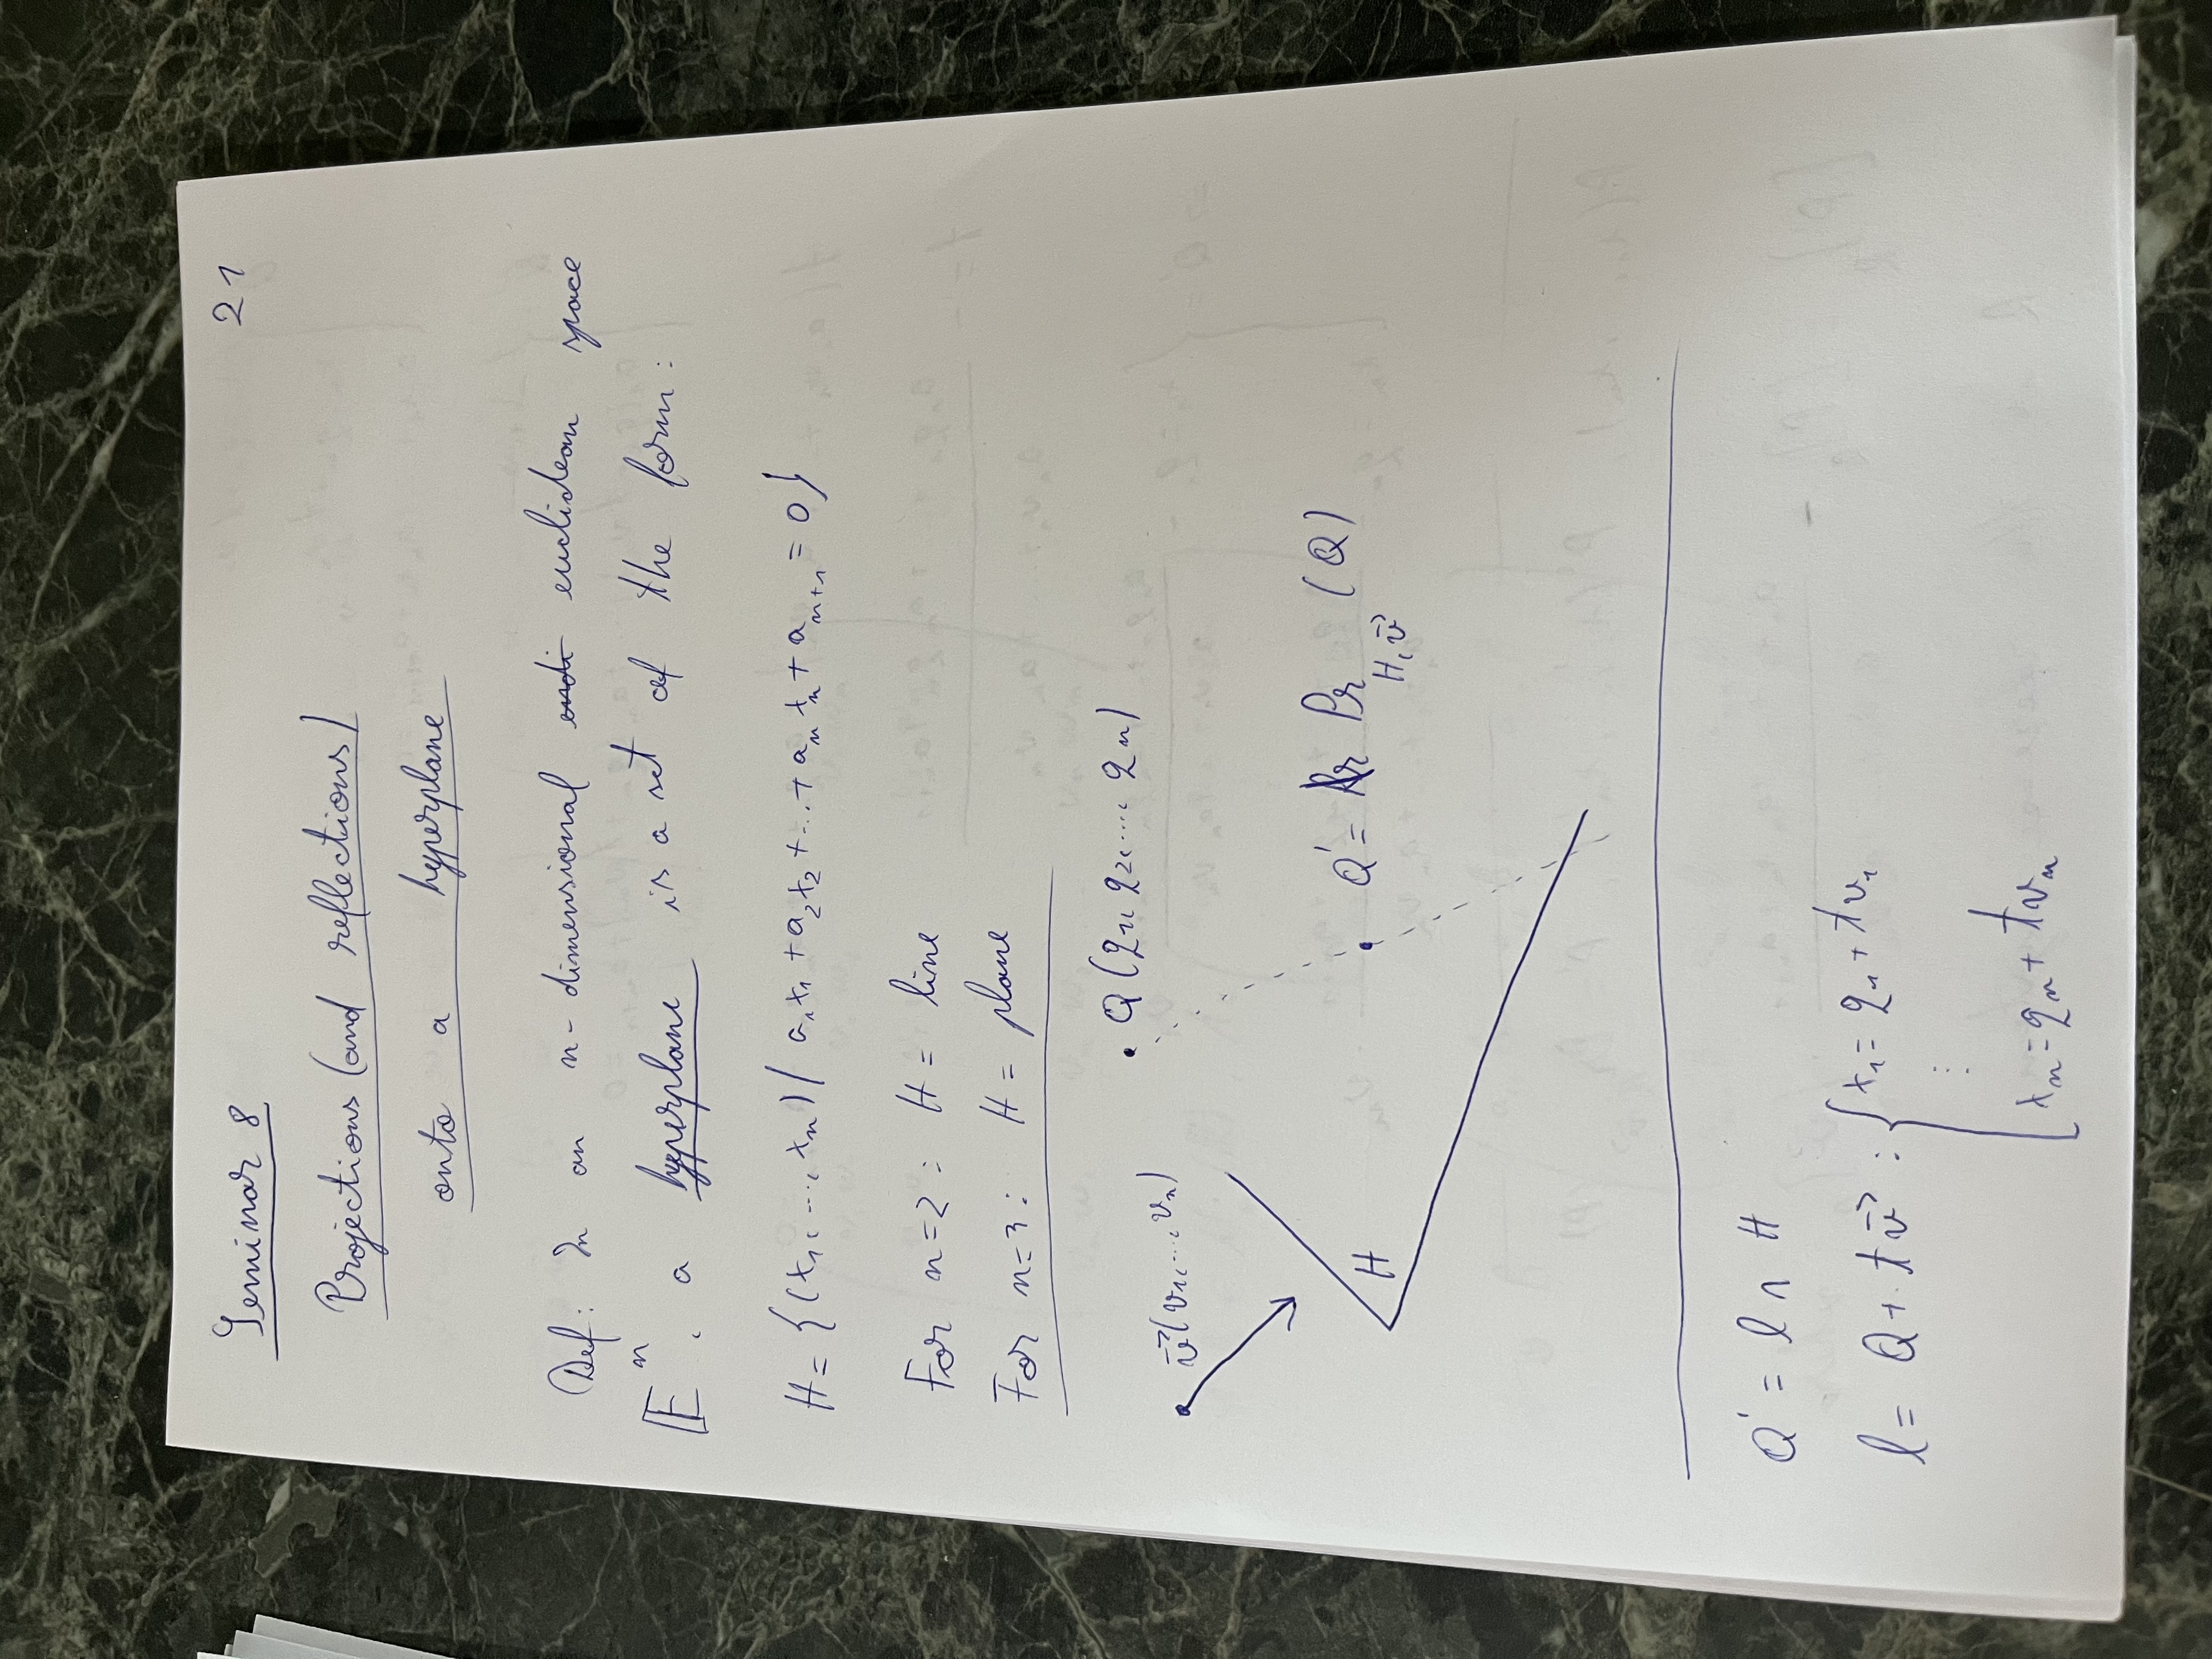 Seminar 8
21
Projections (and reflections)
onto a hyperplane
Def: In an n-dimensional euclidean space
𝔼ⁿ, a hyperplane is a set of the form:
H = {(x₁, ..., xₙ) | a₁x₁ + a₂x₂ + ... + aₙxₙ + aₙ₊₁ = 0}
For n=2: H = line
For n=3: H = plane
Q(q₁, q₂, ..., qₙ)
v⃗(v₁, ..., vₙ)
H
Q' = Pr_{H, v⃗} (Q)
Q' = l ∩ H
l = Q + t v⃗ : { x₁ = q₁ + tv₁
⋮
xₙ = qₙ + tvₙ